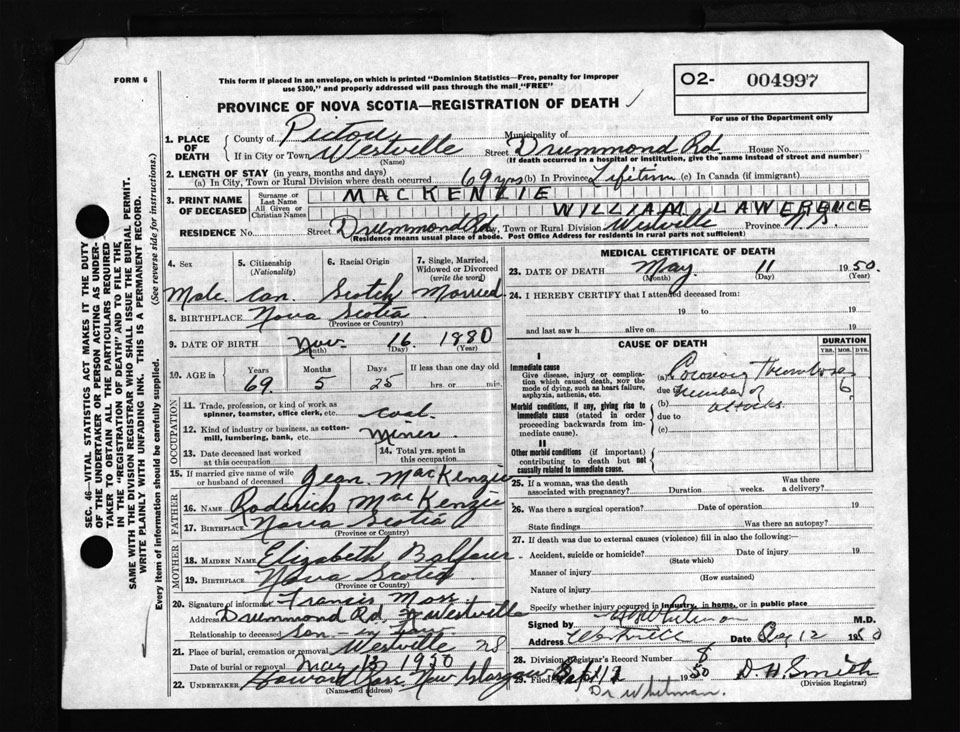 FORM 6
This form if placed in an envelope, on which is printed "Dominion Statistics—Free, penalty for improper
use $300," and properly addressed will pass through the mail "FREE"
O2- 004997
For use of the Department only
PROVINCE OF NOVA SCOTIA—REGISTRATION OF DEATH
SEC. 46—VITAL STATISTICS ACT MAKES IT THE DUTY
OF THE UNDERTAKER OR PERSON ACTING AS UNDER-
TAKER TO OBTAIN ALL THE PARTICULARS REQUIRED
IN THE "REGISTRATION OF DEATH" AND TO FILE THE
SAME WITH THE DIVISION REGISTRAR WHO SHALL ISSUE THE BURIAL PERMIT.
WRITE PLAINLY WITH UNFADING INK. THIS IS A PERMANENT RECORD.
(See reverse side for instructions.)
Every item of information should be carefully supplied.
1. PLACE OF DEATH
County of Pictou Municipality of
If in City or Town Westville Street Drummond Rd. House No.
(Name) (If death occurred in a hospital or institution, give the name instead of street and number)
2. LENGTH OF STAY (in years, months and days)
(a) In City, Town or Rural Division where death occurred 69 yrs (b) In Province Lifetim (c) In Canada (if immigrant)
3. PRINT NAME OF DECEASED
Surname or Last Name MACKENZIE
All Given or Christian Names WILLIAM LAWERENCE
RESIDENCE No. Street Drummond Rd City, Town or Rural Division Westville Province N.S.
(Residence means usual place of abode. Post Office Address for residents in rural parts not sufficient)
4. Sex 5. Citizenship (Nationality) 6. Racial Origin 7. Single, Married, Widowed or Divorced (write the word)
Male Can. Scotch Married
8. BIRTHPLACE Nova Scotia
(Province or Country)
9. DATE OF BIRTH Nov. 16 1880
(Month) (Day) (Year)
10. AGE in Years Months Days If less than one day old
69 5 25 hrs. or min.
OCCUPATION
11. Trade, profession, or kind of work as spinner, teamster, office clerk, etc. coal
12. Kind of industry or business, as cotton-mill, lumbering, bank, etc. miner
13. Date deceased last worked at this occupation 14. Total yrs. spent in this occupation
15. If married give name of wife or husband of deceased Jean MacKenzie
FATHER
16. NAME Roderick MacKenzie
17. BIRTHPLACE Nova Scotia
(Province or Country)
MOTHER
18. MAIDEN NAME Elizabeth Balfour
19. BIRTHPLACE Nova Scotia
(Province or Country)
20. Signature of informant Francis
Address Drummond Rd. Westville
Relationship to deceased Son-in-law
21. Place of burial, cremation or removal Westville NS
Date of burial or removal May 13 1950
22. UNDERTAKER Howard New Glasgow
(Name and address)
MEDICAL CERTIFICATE OF DEATH
23. DATE OF DEATH May 11 1950.
(Month) (Day) (Year)
24. I HEREBY CERTIFY that I attended deceased from:
19 to 19
and last saw h alive on 19
CAUSE OF DEATH DURATION
YRS. MOS. DYS.
I
Immediate cause
Give disease, injury or complication which caused death, not the mode of dying, such as heart failure, asphyxia, asthenia, etc.
(a) Coronary Thrombosis
due to number of
Morbid conditions, if any, giving rise to immediate cause (stated in order proceeding backwards from immediate cause).
(b) attacks.
due to
(c)
II
Other morbid conditions (if important) contributing to death but not causally related to immediate cause.
25. If a woman, was the death associated with pregnancy? Duration weeks. Was there a delivery?
26. Was there a surgical operation? Date of operation 19
State findings Was there an autopsy?
27. If death was due to external causes (violence) fill in also the following:
Accident, suicide or homicide? Date of injury 19
(State which)
Manner of injury
(How sustained)
Nature of injury
Specify whether injury occurred in industry, in home, or in public place
Signed by M.D.
Address Westville Date 12 1950
28. Division Registrar's Record Number 8
29. Filed 12 1950 D. H. Smith
(Division Registrar)
Dr. Whitman.